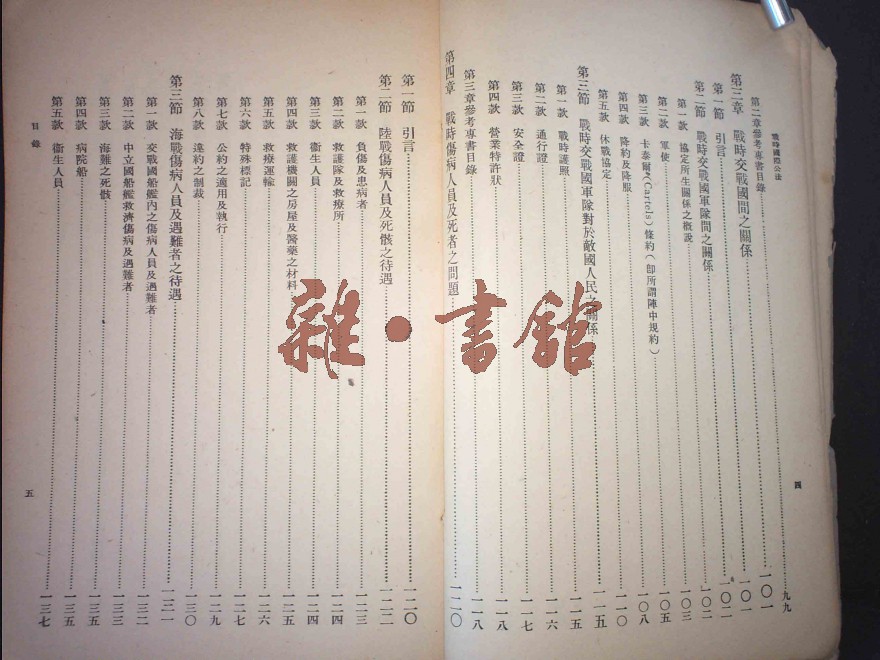 戰時國際公法
第二章參考專書目錄……九九
第三章 戰時交戰國間之關係……一〇一
第一節 引言……一〇一
第二節 戰時交戰國軍隊間之關係……一〇二
第一款 協定所生關係之概說……一〇二
第二款 軍使……一〇三
第三款 卡泰爾(Cartels)條約(即所謂陣中規約)……一〇五
第四款 降約及降服……一〇八
第五款 休戰協定……一一〇
第三節 戰時交戰國軍隊對於敵國人民之關係……一一五
第一款 戰時護照……一一五
第二款 通行證……一一六
第三款 安全證……一一七
第四款 營業特許狀……一一八
第三章參考專書目錄……一一八
第四章 戰時傷病人員及死者之問題……一二〇
四
第一節 引言……一二〇
第二節 陸戰傷病人員及死骸之待遇……一二二
第一款 負傷及患病者……一二三
第二款 救護隊及救療所……一二四
第三款 衞生人員……一二四
第四款 救護機關之房屋及醫藥之材料……一二五
第五款 救療運輸……一二六
第六款 特殊標記……一二七
第七款 公約之適用及執行……一二九
第八款 違約之制裁……一三〇
第三節 海戰傷病人員及遇難者之待遇……一三一
第一款 交戰國船艦內之傷病人員及遇難者……一三二
第二款 中立國船艦救濟傷病及遇難者……一三三
第三款 海難之死骸……一三五
第四款 病院船……一三五
第五款 衞生人員……一三七
目錄
五
雜·書舘